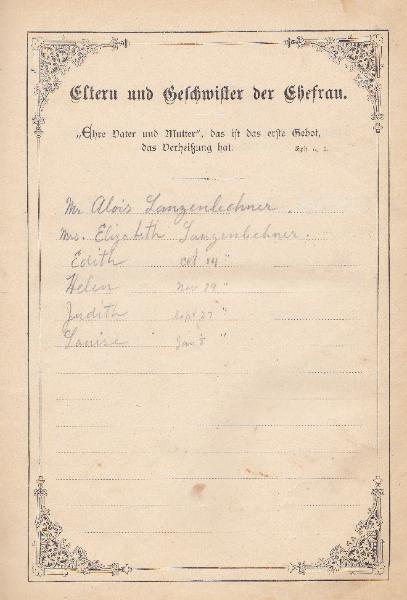 Eltern und Geschwister der Ehefrau.
„Ehre Vater und Mutter“, das ist das erste Gebot,
das Verheißung hat. Eph. 6, 2.
Mr Alois Lanzenlechner.
Mrs. Elizabeth Lanzenlechner.
Edith Oct 14 "
Helen Nov 29 "
Judith Sept 27 "
Louise Jan 8 "